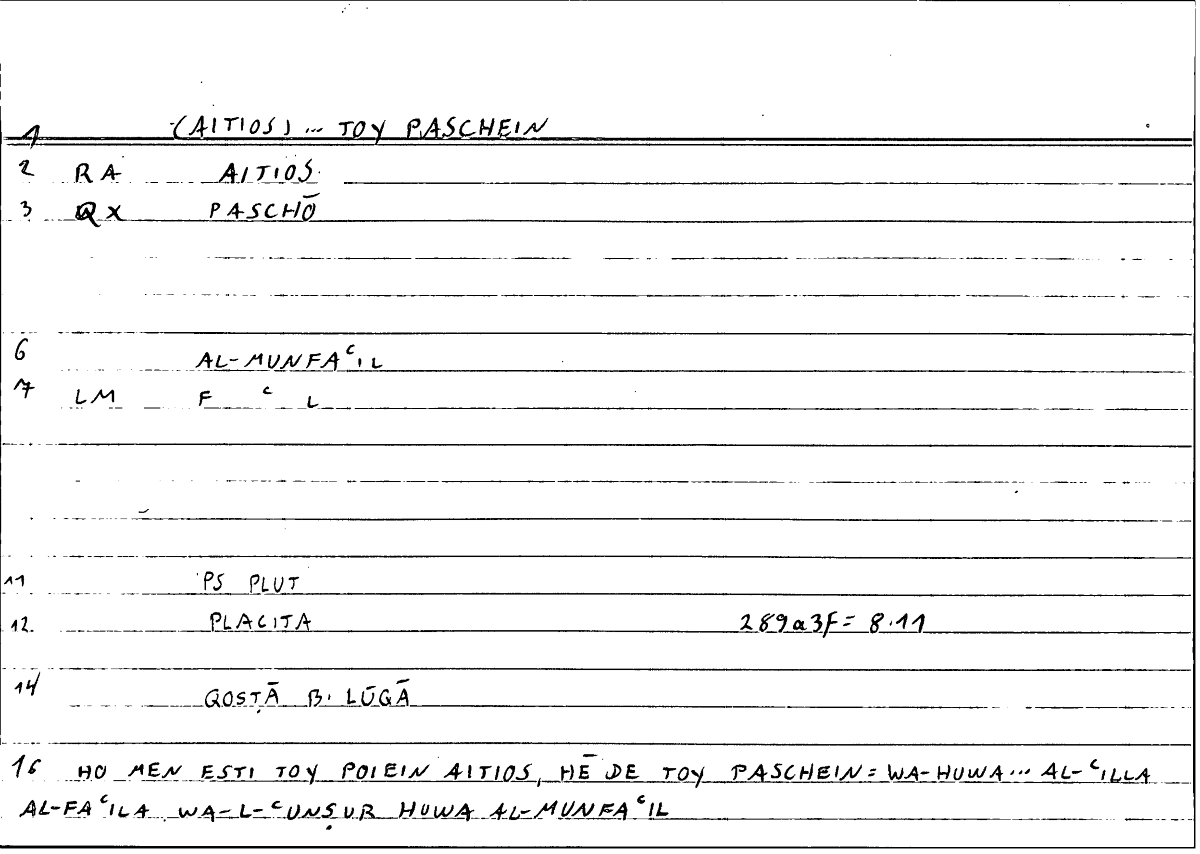 1 (AITIOS) ... TOY PASCHEIN
2 RA AITIOS
3 QX PASCHŌ
6 AL-MUNFAᶜIL
7 LM F ᶜ L
11 PS PLUT
12. PLACITA 289a3f = 8.11
14 QOSṬĀ B. LŪQĀ
16 HO MEN ESTI TOY POIEIN AITIOS, HĒ DE TOY PASCHEIN = WA-HUWA... AL-ᶜILLA
AL-FAᶜILA WA-L-ᶜUNṢUR HUWA AL-MUNFAᶜIL